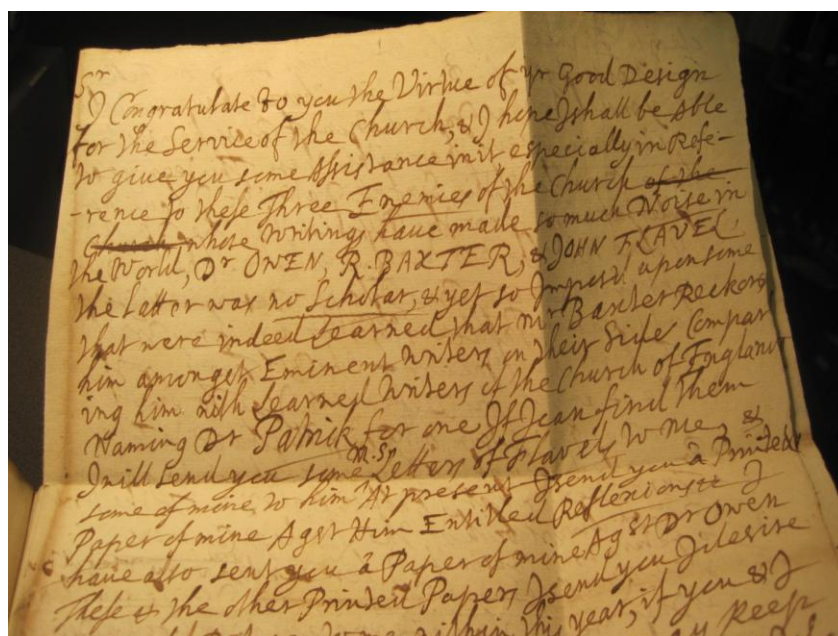 Sr
I Congratulate to you the Virtue of yr Good Design
For the Service of the Church, & I hope I shall be Able
to give you some Assistance in it especially in Refe-
-rence to these Three Enemies of the Church of the
Church whose Writings have made so much Noise in
the World, Dr OWEN, R. BAXTER, & JOHN FLAVEL,
the Latter was no Scholar, & yet so Impos'd upon some
that were indeed Learned that Mr Baxter Reckons
him amongst Eminent Writers on their Side Compar
ing him with Learned Writers of the Church of England
Naming Dr Patrick for one If I can find them
I will send you some M.S. Letters of Flavels to me, &
some of mine to him At present I send you â Printed
Paper of mine Agst Him Entitled Reflexions &c I
have also sent you â Paper of mine Agst Dr Owen
These & the other Printed Papers I send you I desire
within this year, if you & I
keep